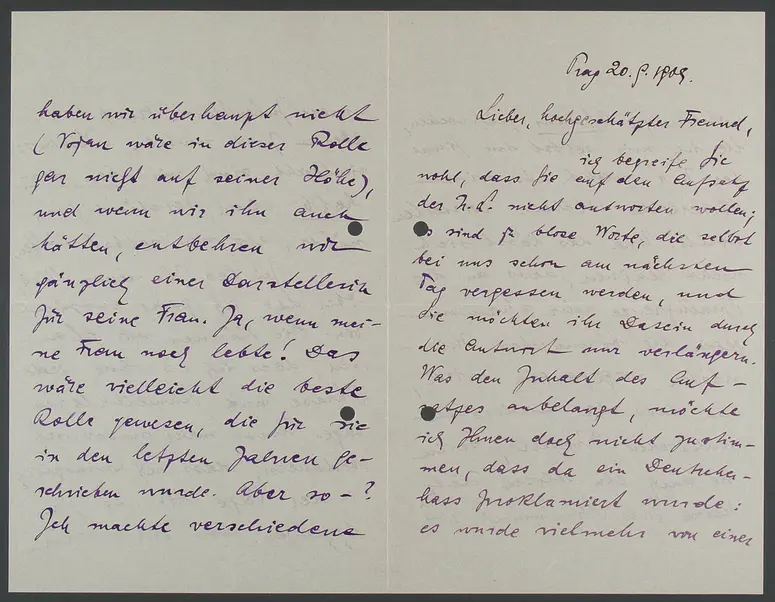 Prag 20.
Lieber, hochgeschätzter Freund,
ich begreife Sie
wohl, dass Sie auf den Aufsatz
der nicht antworten wollen;
es sind ja blose Worte, die selbst
bei uns schon am nächsten
Tag vergessen werden, und
Sie möchten ihr Dasein durch
die Antwort nur verlängern.
Was den Inhalt des Auf-
satzes anbelangt, möchte
ich Ihnen doch nicht zustim-
men, dass da ein Deutschen-
hass proklamiert wurde:
es wurde vielmehr von einer
haben wir überhaupt nicht
(Vojan wäre in dieser Rolle
gar nicht auf seiner Höhe),
und wenn wir ihn auch
hätten, entbehren wir
gänzlich einer Darstellerin
für seine Frau. Ja, wenn mei-
ne Frau noch lebte! Das
wäre vielleicht die beste
Rolle gewesen, die für sie
in den letzten Jahren ge-
schrieben wurde. Aber so -?
Ich machte verschiedene